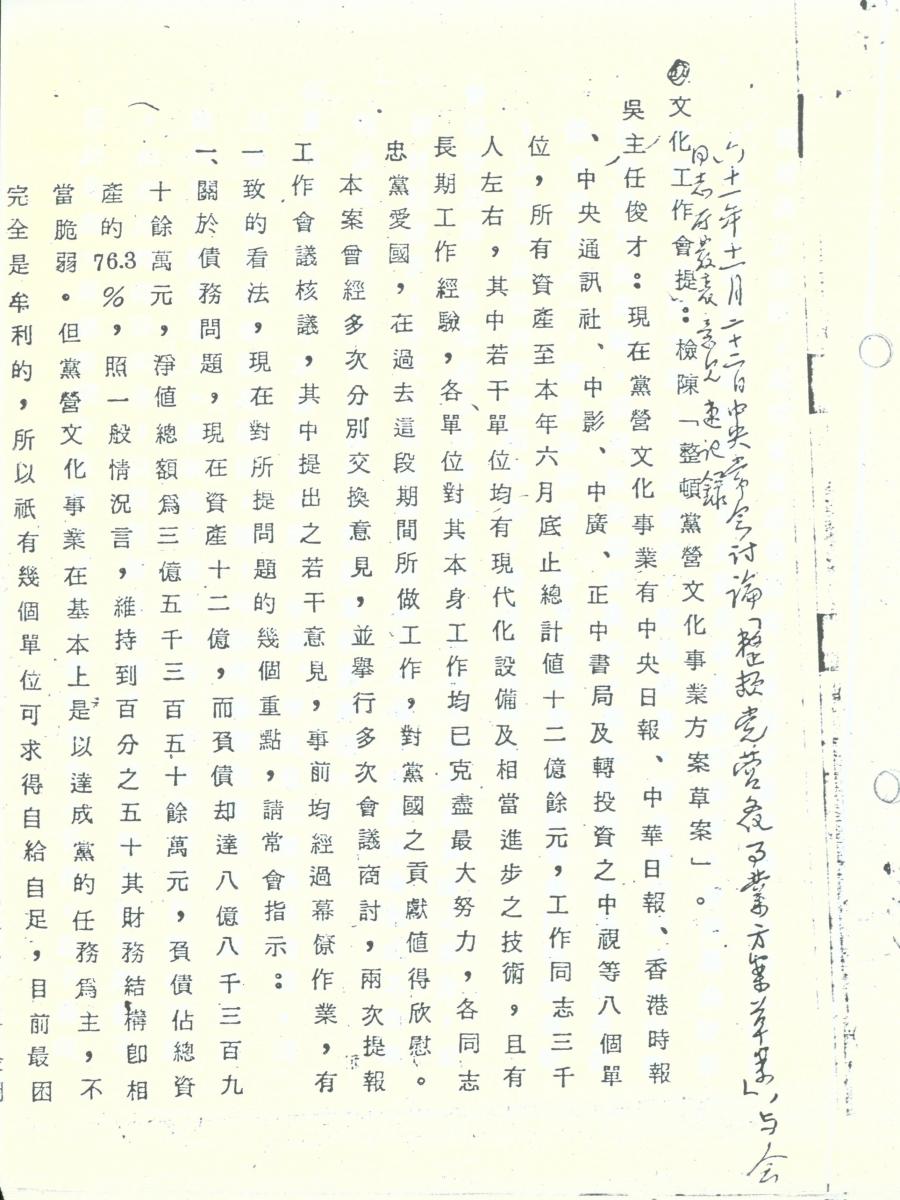 六十一年十一月二十二日中央常会討論「整頓党营文化事業方案草案」，与会
同志所發表意見速记錄
文化工作會提：檢陳「整頓黨營文化事業方案草案」。
吳主任俊才：現在黨營文化事業有中央日報、中華日報、香港時報
、中央通訊社、中影、中廣、正中書局及轉投資之中視等八個單
位，所有資產至本年六月底止總計値十二億餘元，工作同志三千
人左右，其中若干單位均有現代化設備及相當進步之技術，且有
長期工作經驗，各單位對其本身工作均已克盡最大努力，各同志
忠黨愛國，在過去這段期間所做工作，對黨國之貢獻値得欣慰。
本案曾經多次分別交換意見，並舉行多次會議商討，兩次提報
工作會議核議，其中提出之若干意見，事前均經過幕僚作業，有
一致的看法，現在對所提問題的幾個重點，請常會指示：
一、關於債務問題，現在資產十二億，而負債却達八億八千三百九
十餘萬元，淨値總額爲三億五千三百五十餘萬元，負債佔總資
產的76.3%，照一般情況言，維持到百分之五十其財務結構卽相
當脆弱。但黨營文化事業在基本上是以達成黨的任務爲主，不
完全是牟利的，所以祇有幾個單位可求得自給自足，目前最困